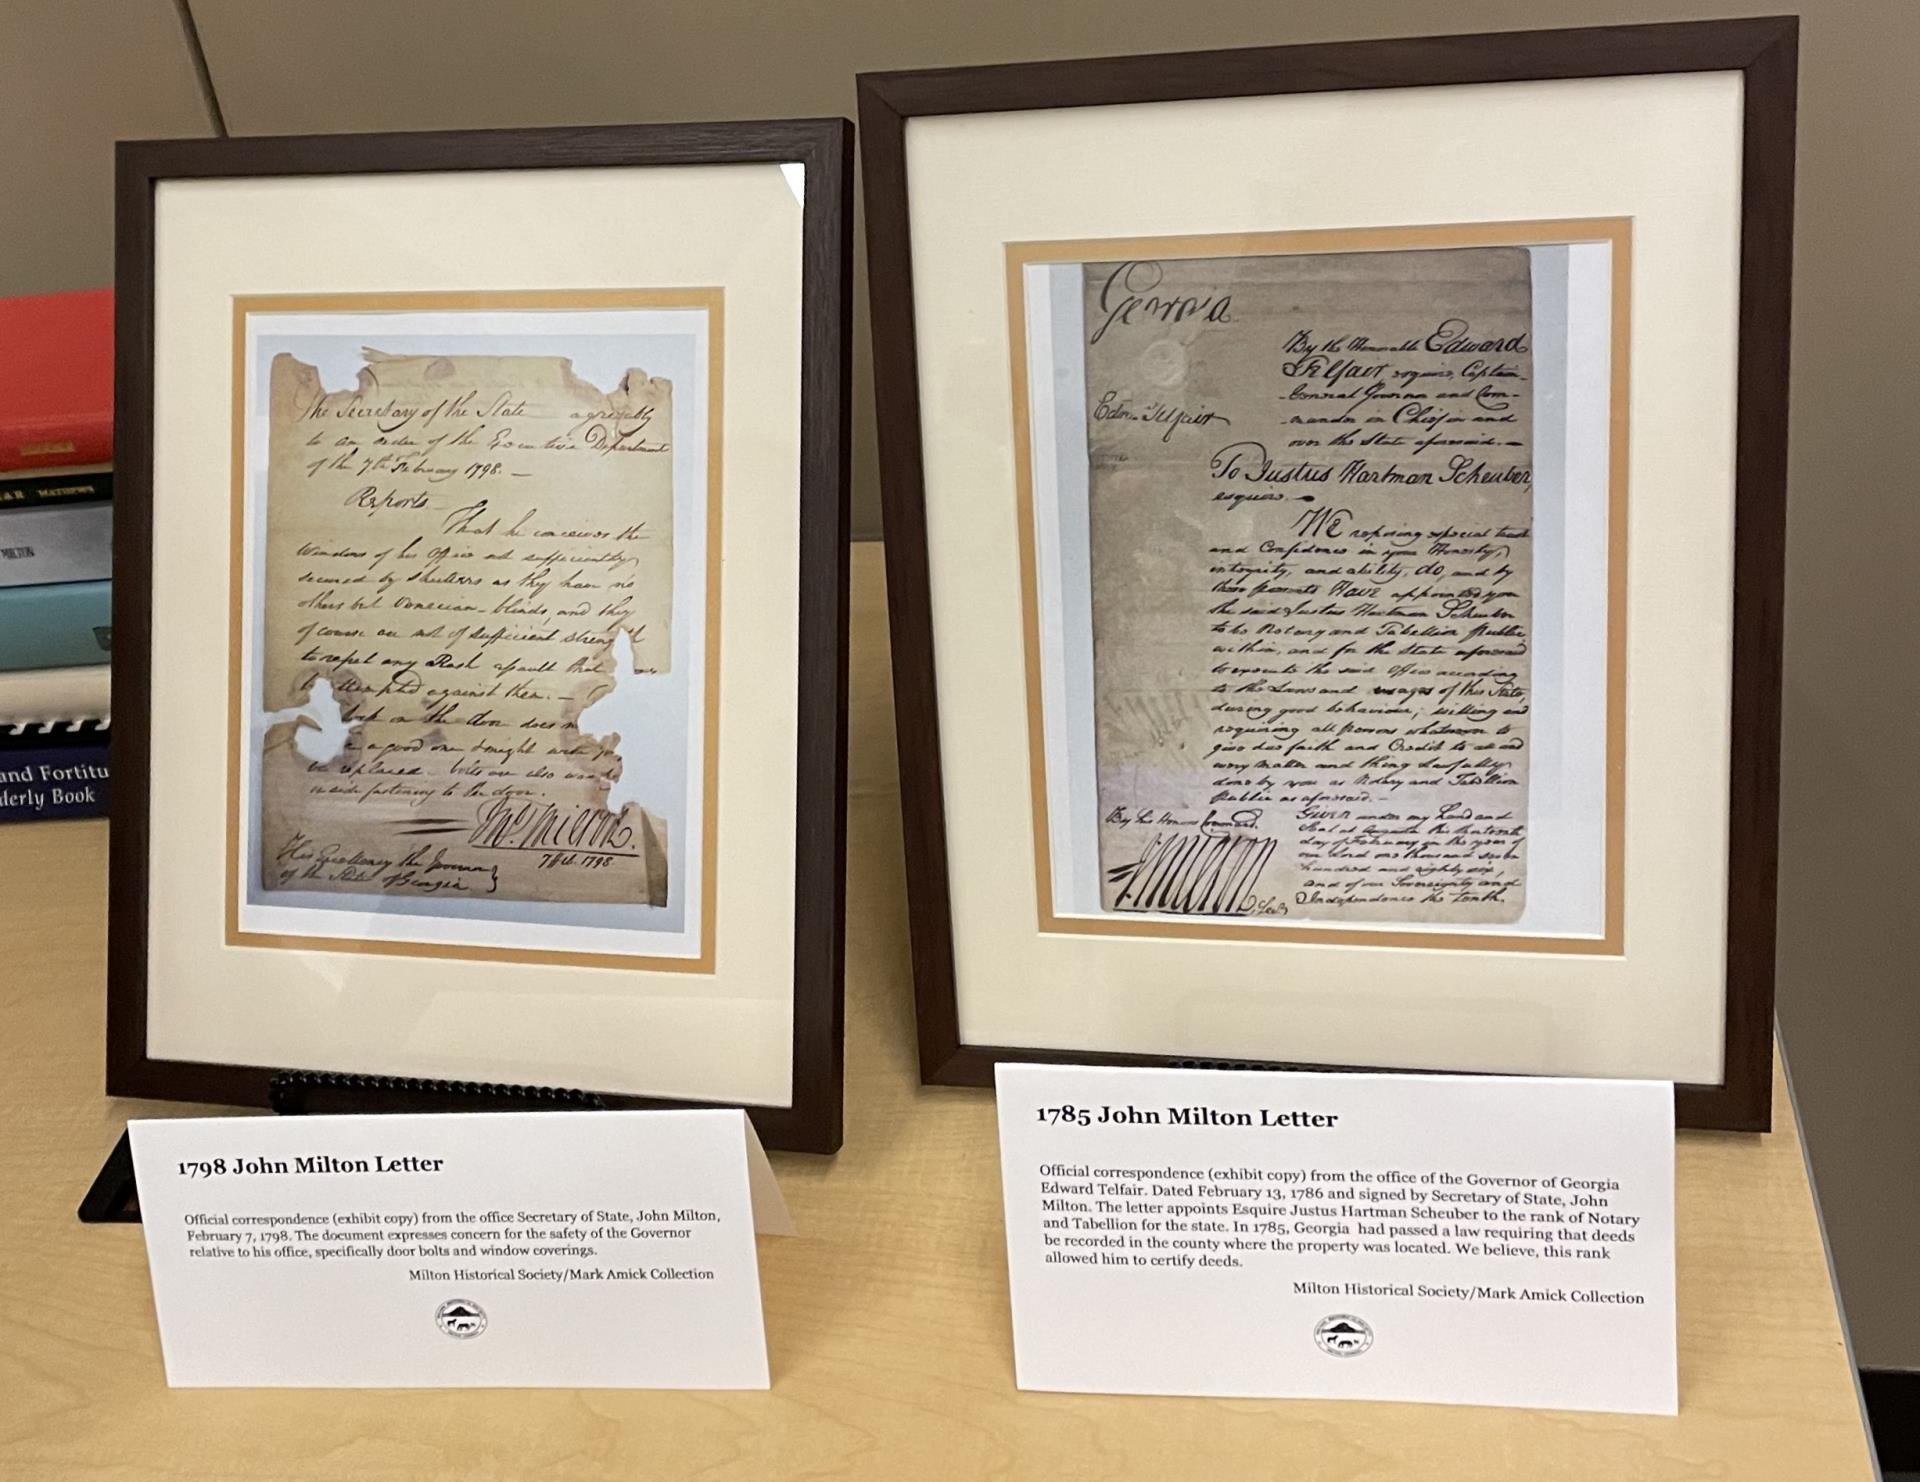 MATHEWS
MILTON
and Fortitu
derly Book
The Secretary of the State agreeably
to an order of the Executive Department
of the 7th February 1798. —
Reports
That he conceives the
Windows of his Office not sufficiently
secured by shutters as they have no
others but Venecian-blinds, and they
of course are not of sufficient strength
to repel any Rash assault that
attempted against them. —
lock on the door does
a good one
be replaced. bolts are also
inside fastening to the door.
Jno. Milton.
7 Feb. 1798.
His Excellency the Governor
of the State of Georgia
Georgia
By the Honorable Edward
Telfair esquire, Captain-
General Governor and Com-
mander in Chief in and
over the State aforesaid. —
Edw. Telfair
To Justus Hartman Scheuber,
esquire. —
We reposing especial trust
and Confidence in your Honesty,
integrity, and ability, do, and by
these presents Have appointed you
the said Justus Hartman Scheuber
to be Notary and Tabellion Public
within, and for the State aforesaid
to execute the said Office according
to the Laws and usages of this State,
during good behaviour; willing and
requiring all persons whatsoever to
give due faith and Credit to all and
every matter and thing Lawfully
done by you as Notary and Tabellion
Public as aforesaid. —
Given under my Hand and
Seal at Augusta this thirteenth
day of February in the year of
our Lord one thousand seven
hundred and eighty six,
and of our Sovereignty and
Independence the tenth.
By his Honors command.
J. Milton, Secy
1798 John Milton Letter
Official correspondence (exhibit copy) from the office Secretary of State, John Milton,
February 7, 1798. The document expresses concern for the safety of the Governor
relative to his office, specifically door bolts and window coverings.
Milton Historical Society/Mark Amick Collection
1785 John Milton Letter
Official correspondence (exhibit copy) from the office of the Governor of Georgia
Edward Telfair. Dated February 13, 1786 and signed by Secretary of State, John
Milton. The letter appoints Esquire Justus Hartman Scheuber to the rank of Notary
and Tabellion for the state. In 1785, Georgia had passed a law requiring that deeds
be recorded in the county where the property was located. We believe, this rank
allowed him to certify deeds.
Milton Historical Society/Mark Amick Collection